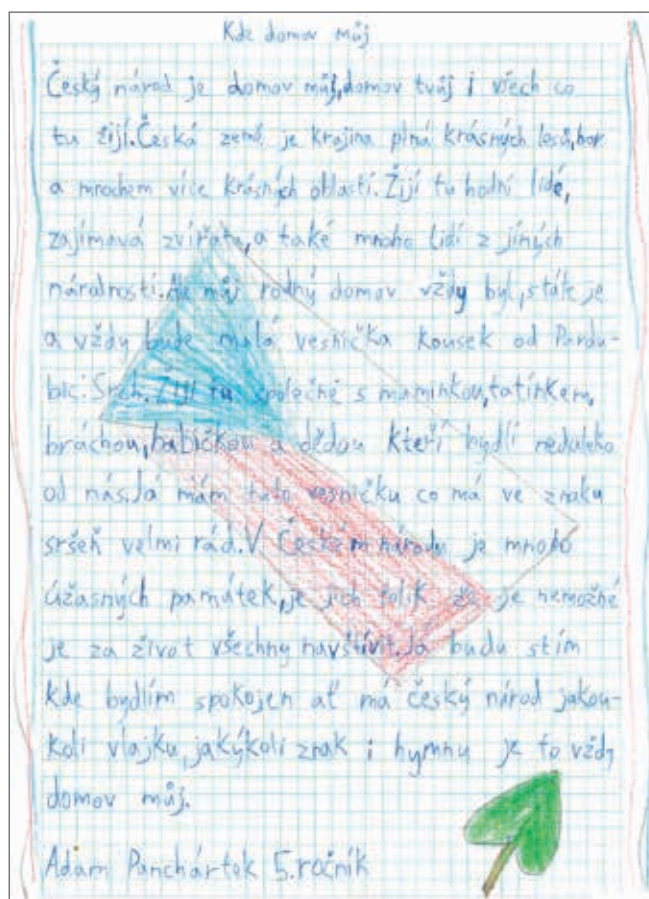 Kde domov můj
Český národ je domov můj,domov tvůj i všech co
tu žijí.Česká země je krajina plná krásných lesů,hor
a mnohem více krásných oblastí.Žijí tu hodní lidé,
zajímavá zvířata,a také mnoho lidí z jiných
národností.Ale můj rodný domov vždy byl,stále je
a vždy bude malá vesnička kousek od Pardu-
bic:Srch.Žiji tu společně s maminkou,tatínkem,
bráchou,babičkou a dědou kteří bydlí nedaleko
od nás.Já mám tuto vesničku co má ve znaku
sršeň velmi rád.V Českém národu je mnoho
úžasných památek,je jich tolik že je nemožné
je za život všechny navštívit.Já budu stím
kde bydlím spokojen ať má český národ jakou-
koli vlajku,jakýkoli znak i hymnu je to vždy
domov můj.
Adam Panchártek 5.ročník